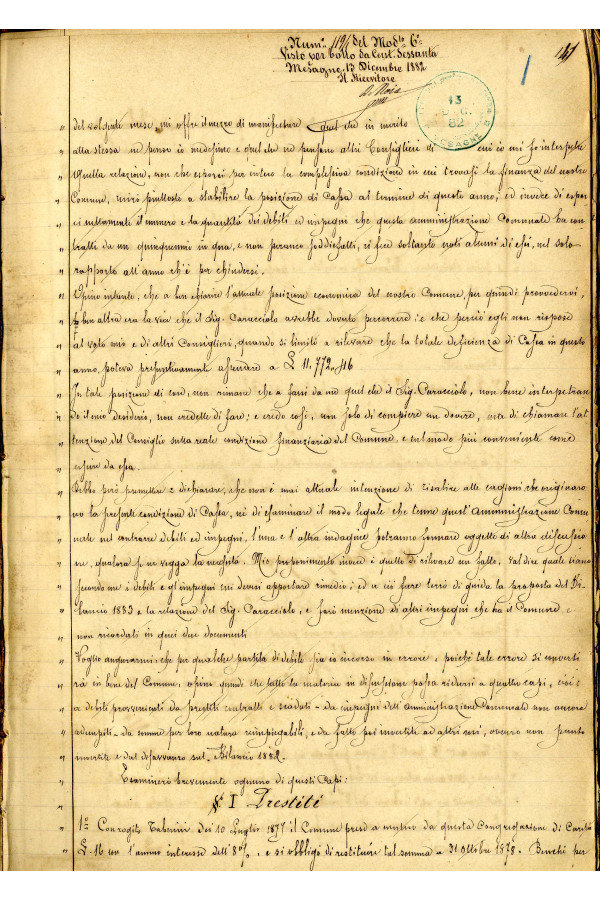 Num.° 119/1 del Mod.lo 6°
Visto per bollo da Cent. Sessanta
Mesagne, 13 Dicembre 1882
Il Ricevitore
13
82
MESAGNE
del volgente mese, mi offre il mezzo di manifestare quel che in merito
alla stessa ne penso io medesimo e quel che ne pensano altri Consiglieri di cui io mi fo interprete
Quella relazione, non che esporci per intero la complessiva condizione in cui trovasi la finanza del nostro
Comune, mirò piuttosto a stabilire la posizione di Cassa al termine di questo anno; ed invece di espor
ci nettamente il numero e la quantità dei debiti ed impegni che questa amministrazione Comunale ha con
tratti da un quinquennio in qua, e non peranco soddisfatti, ci fece soltanto noti alcuni di essi, nel solo
rapporto all'anno ch'è per chiudersi.
Opino intanto, che a ben chiarire l'attuale posizione economica del nostro Comune, per quindi provvedervi,
ben altra era la via che il Sig. Caracciolo avrebbe dovuto percorrere; e che perciò egli non rispose
al voto mio e di altri Consiglieri, quando si limitò a rilevare che la totale deficienza di Cassa in questo
anno, poteva presuntivamente ascendere a £ 11,772.,16
In tale posizione di cose, non rimane che a farsi da me quel che il Sig. Caracciolo, non bene interpetran
do il mio desiderio, non credette di fare; e credo così, non solo di compiere un dovere, ma di chiamare l'at
tenzione del Consiglio sulla reale condizione finanziaria del Comune, e sul modo più conveniente come
uscire da essa.
Debbo però premettere e dichiarare, che non è mia attuale intenzione di risalire alle cagioni che originaro
no la presente condizione di Cassa, nè di esaminare il modo legale che tenne quest'Amministrazione Comu
nale nel contrarre debiti ed impegni; l'una e l'altra indagine potranno formare oggetto di altra discussio
ne, qualora se ne vegga la necessità. Mio proponimento invece è quello di rilevare un fatto, val dire quali siano
secondo me i debiti e gl'impegni cui devesi apportare rimedio; ed a ciò fare terrò di guida la proposta del Bi
lancio 1883 e la relazione del Sig. Caracciolo, e farò menzione di altri impegni che ha il Comune, e
non ricordati in quei due documenti
Voglio augurarmi, che per qualche partita di debito sia io incorso in errore, poichè tale errore si converti
rà in bene del Comune, opino quindi che tutta la materia in discussione possa ridursi a quattro capi, cioè:
a debiti provvenienti da prestiti contratti e scaduti - da impegni dell'amministrazione Comunale non ancora
adempiti - da somme per loro natura reimpiegabili, e da fatto poi invertite ad altri usi, ovvero non punto
invertite e dal disavanzo sul Bilancio 1882.
Esaminerò brevemente ognuno di questi Capi:
§ I Prestiti
1.° Con rogito Taberini dei 10 Luglio 1877 il Comune prese a mutuo da questa Congregazione di Carità
£ 16 con l'annuo interesse dell'8%, e si obbligò di restituire tal somma a 31 Ottobre 1878. Benchè per